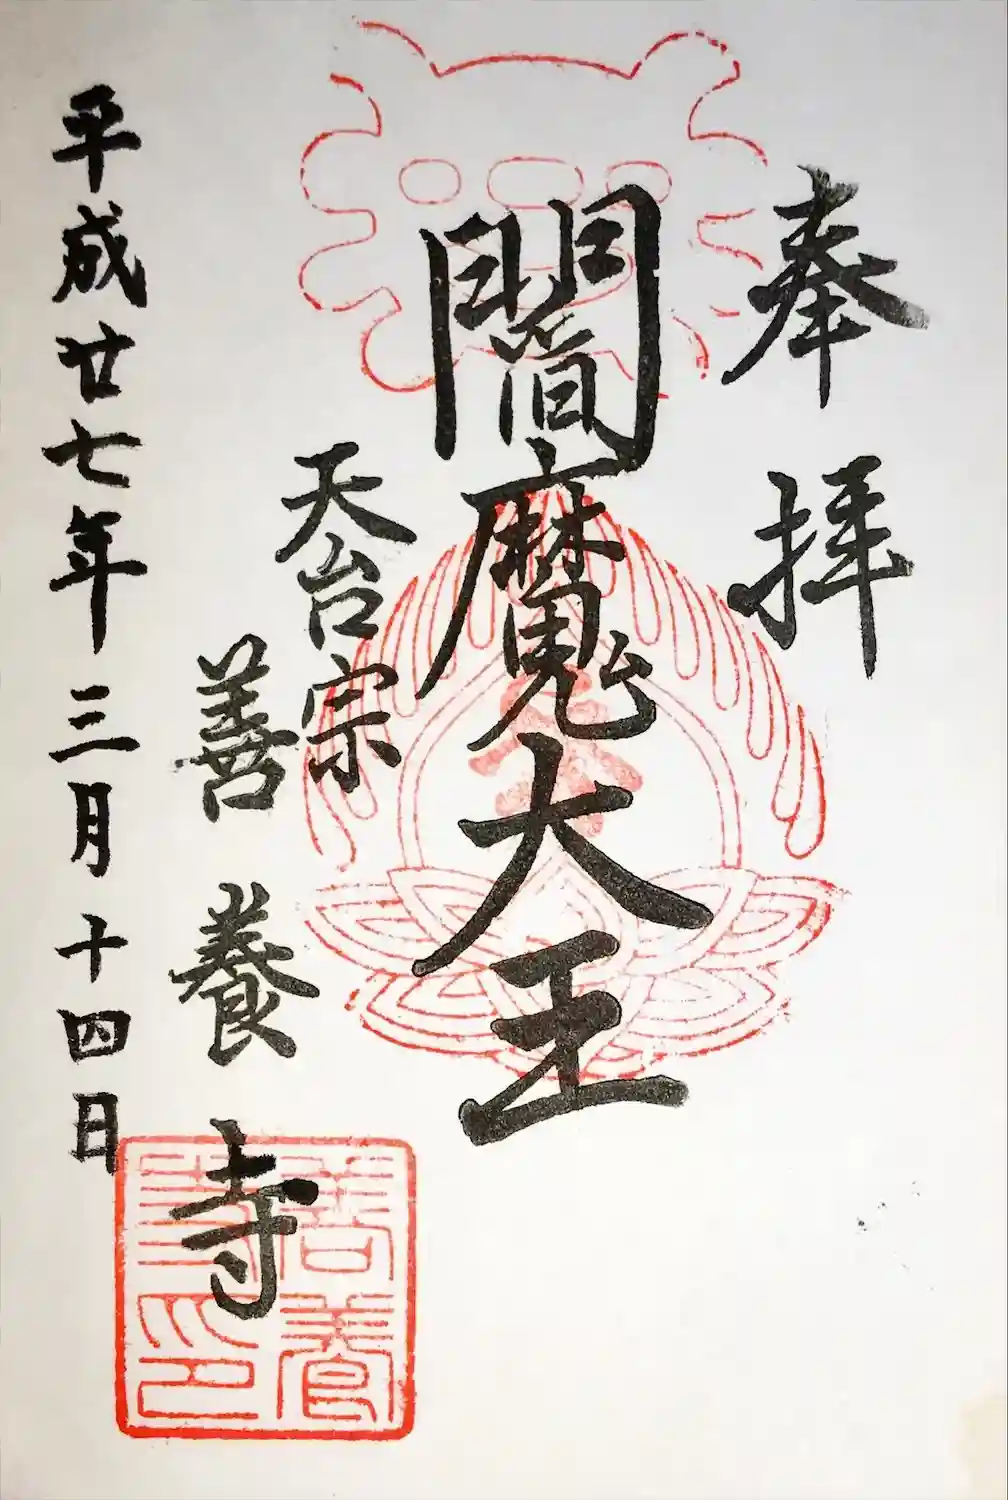 奉拝
閻魔大王
天台宗
善養寺
平成廿七年三月十四日
善養
寺印